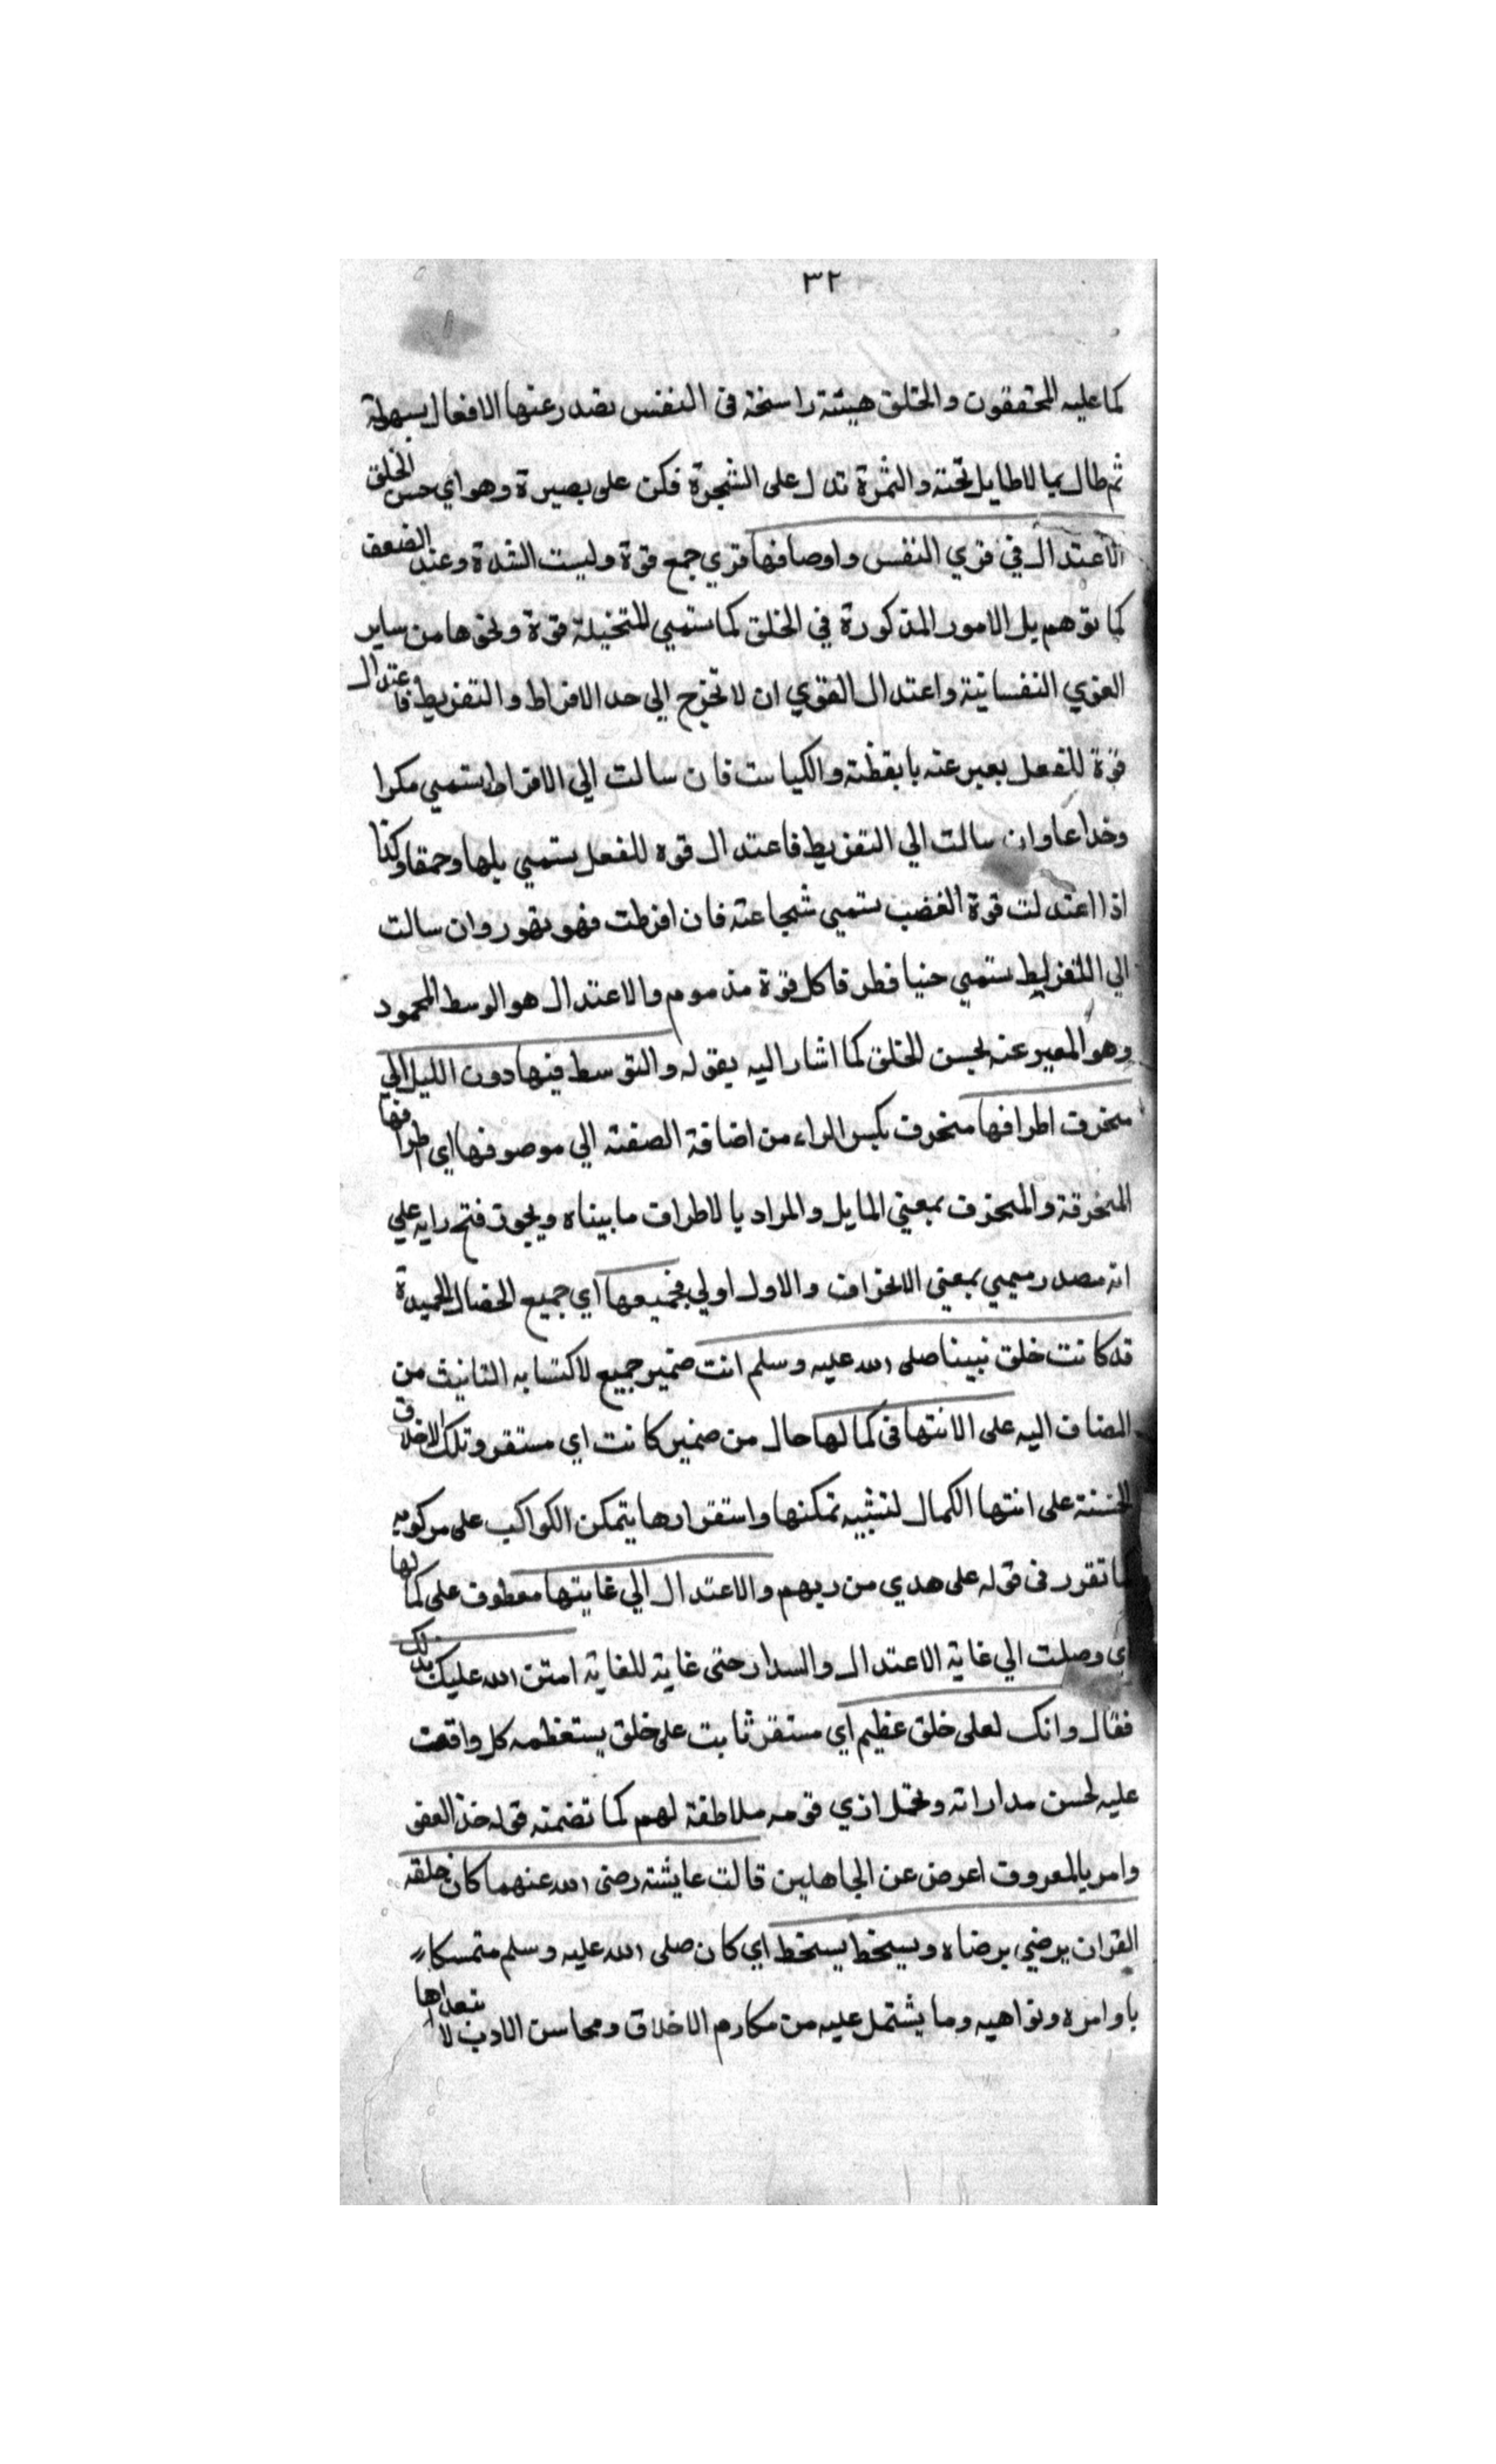 ٣٢
كما عليه المحققون والخلق هيئة راسخة فى النفس تصدر عنها الافعال بسهولة
ثم طال بما لا طايل تحته والثمرة تدل على الشجرة فكن على بصيرة وهو اي حسن الخلق
الاعتدال في قوي النفس واوصافها قوي جمع قوة وليست الشدة وعند الضعف
كما توهم بل الامور المذكورة في الخلق كما ستمي المتخيلة قوة ونحوها من ساير
القوي النفسانية واعتدال القوي ان لا تخرج الي حد الافراط والتفريط فاعتدال
قوة للفعل يعبر عنه بايقظة والكياست فان سالت الي الافراط يستمي مكرا
وخداعا وان سالت الي التفريط فاعتدال قوه للفعل يستمي بلها وحمقا وكذا
اذا اعتدلت قوة الغضب ستمي شجاعة فان افرطت فهو تهور وان سالت
الي التفريط ستمي حنيا فطرفا كل قوة مذموم والاعتدال هو الوسط المحمود
وهو المعبر عنه بحسن الخلق كما اشار اليه بقوله والتوسط فيها دون الليل الي
منحرف اطرافها منحرف بكسر الراء من اضافة الصفة الي موصوفها اي اطرافها
المنحرفة والمنحرف بمعني المايل والمراد بالاطراف ما بيناه ويجوز فتح رايه علي
انه مصدر ميمي بمعني الانحراف والاول اولي فجميعها اي جميع الخصال الحميدة
قد كانت خلق نبينا صلى الله عليه وسلم انت ضمير جميع لاكتسابه التانيث من
المضاف اليه على الانتها فى كمالها حال من ضمير كانت اي مستقر وتلك الاخلاق
الحسنة على انتها الكمال لتشبيه تمكنها واستقرارها بتمكن الكواكب على مركوبه
كما تقرر فى قوله على هدي من ربهم والاعتدال الي غايتها معطوف على كمالها
اي وصلت الي غاية الاعتدال والسداد حتى غاية للغاية امتن الله عليك بذلك
فقال وانك لعلى خلق عظيم اي مستقر ثابت على خلق يستعظمه كل واقف
عليه لحسن مداراته وتحمل اذي قومه ملاطفة لهم كما تضمنه قوله خذ العفو
وامر بالمعروف اعرض عن الجاهلين قالت عايشة رضى الله عنهما كان خلقه
القران يرضي برضاه ويسخط بسخط اي كان صلى الله عليه وسلم متمسكا
باوامره ونواهيه وما يشتمل عليه من مكارم الاخلاق ومحاسن الادب لا يتعداها